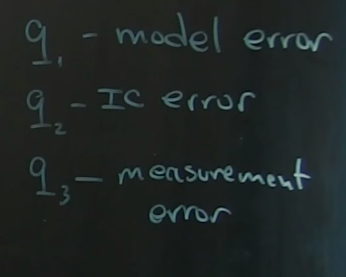 q₁ - model error
q₂ - IC error
q₃ - measurement
error